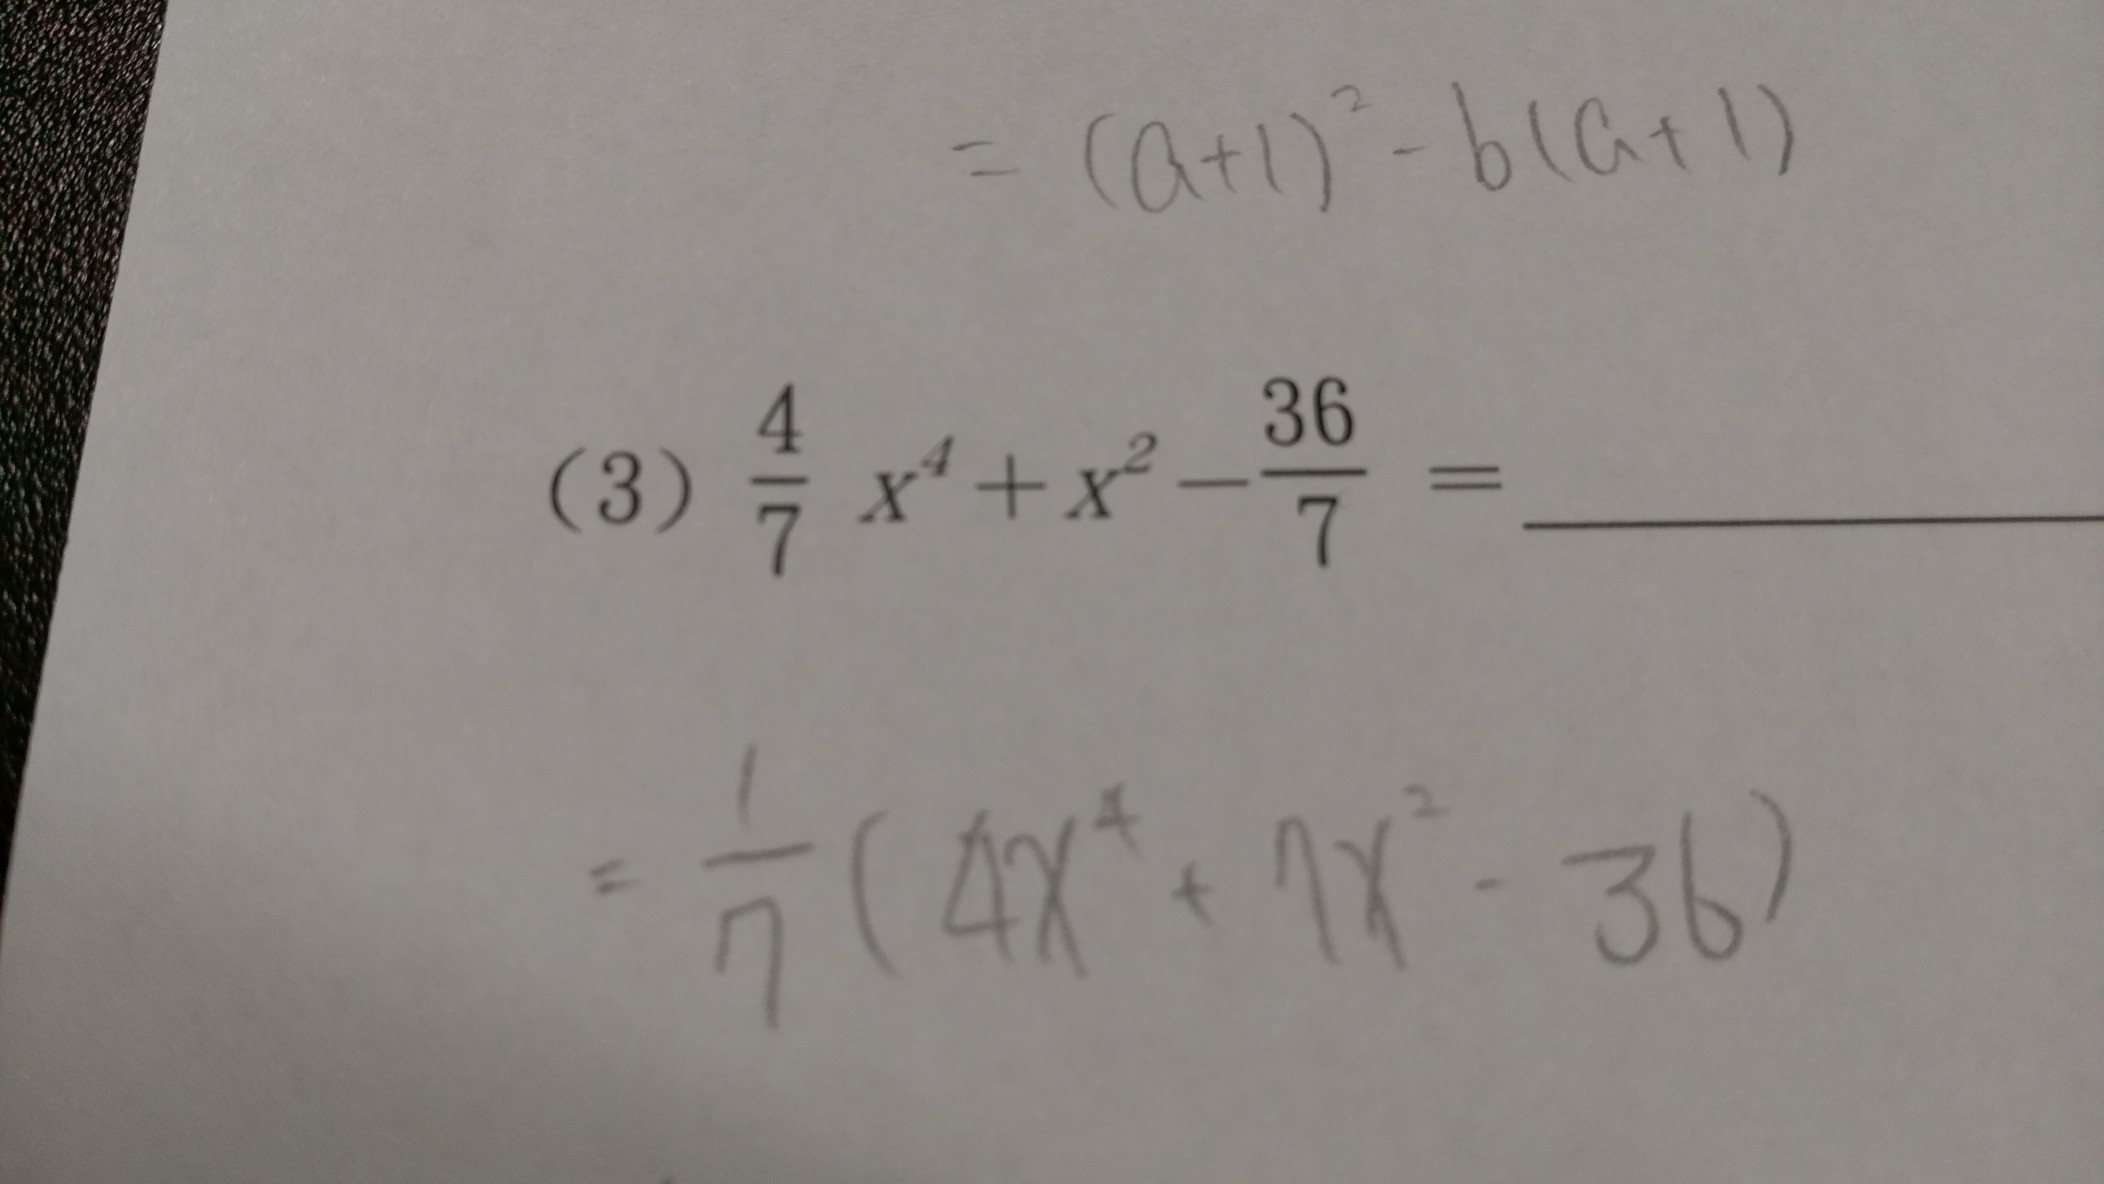 = (a+1)² - b(a+1)
(3) 4/7 x⁴ + x² - 36/7 = ________
= 1/7 (4x⁴ + 7x² - 36)